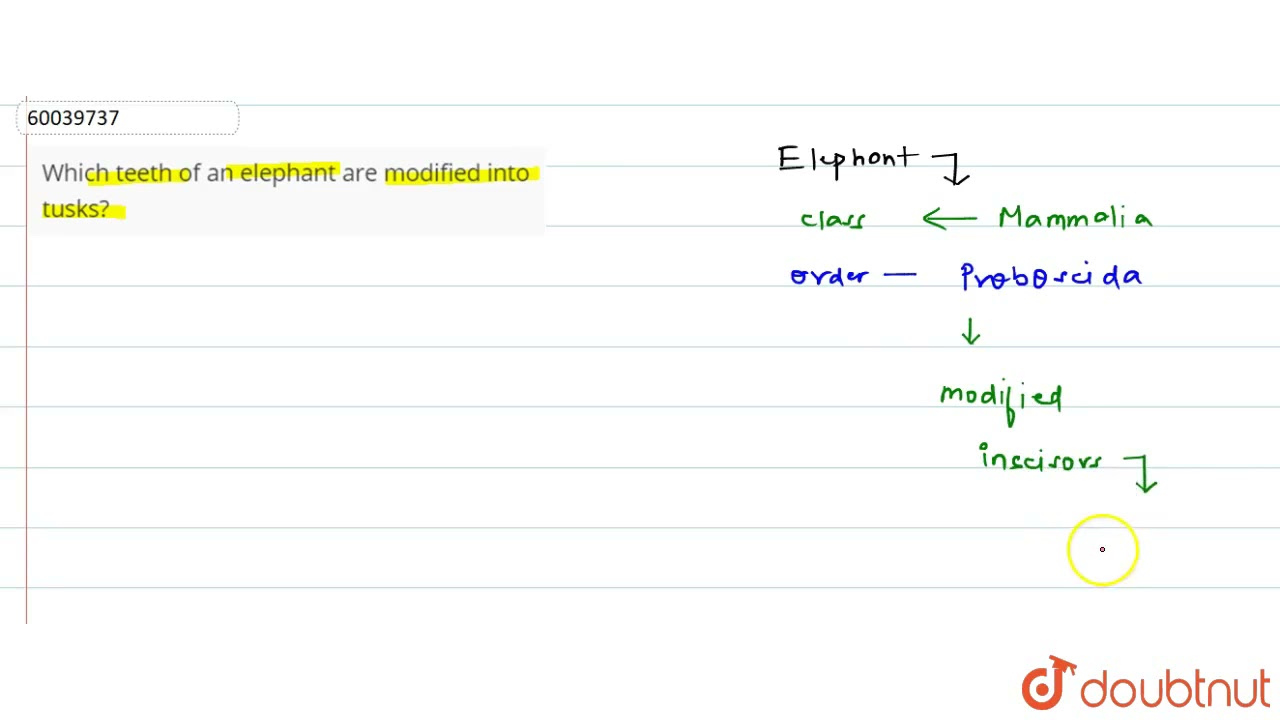 60039737
Which teeth of an elephant are modified into
tusks?
Elephant
class ← Mammalia
order — Proboscida
↓
modified
inscisors
doubtnut